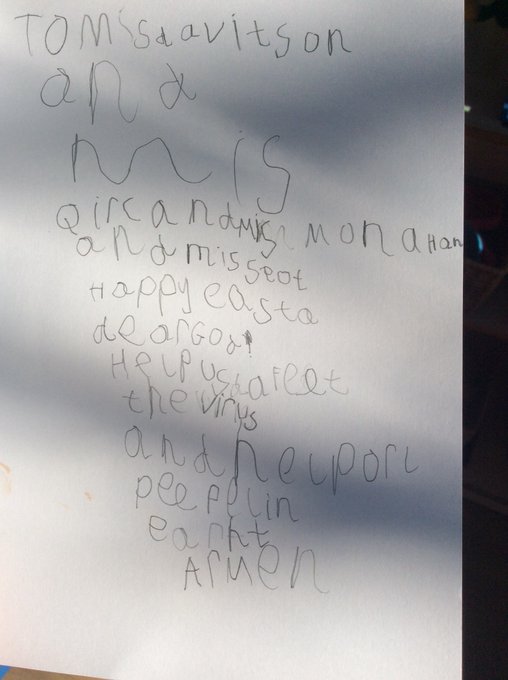 TOMisdavitson
and
mis
Qircandmis Monahan
and misseot
Happy easta
dearGod
Help us
the virus
and helporl
peepelin
earht
Armen